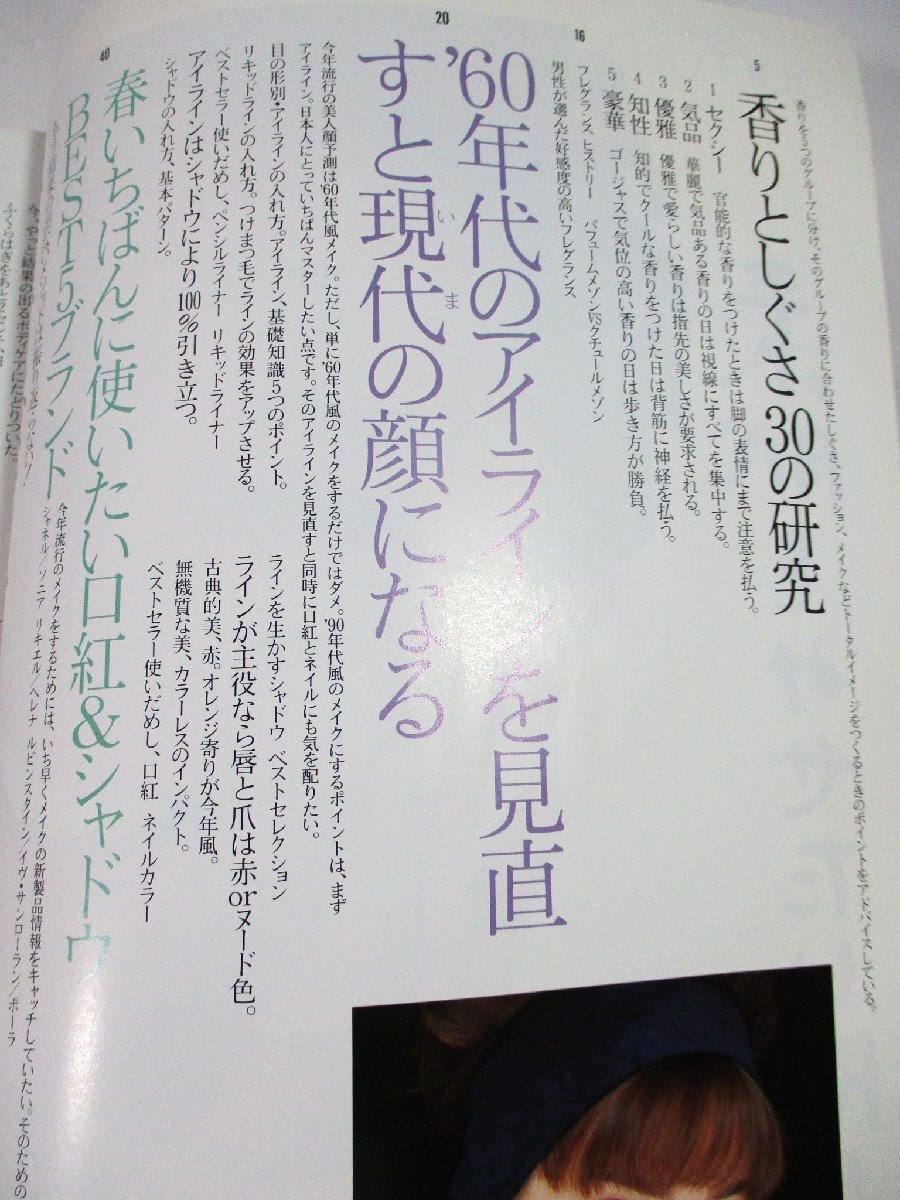 5
香りとしぐさ30の研究
香りを5つのグループに分け、そのグループの香りに合わせたしぐさ、ファッション、メイクなどトータルイメージをつくるときのポイントをアドバイスしている。
1 セクシー 官能的な香りをつけたときは脚の表情にまで注意を払う。
2 気品 華麗で気品ある香りの日は視線にすべてを集中する。
3 優雅 優雅で愛らしい香りは指先の美しさが要求される。
4 知性 知的でクールな香りをつけた日は背筋に神経を払う。
5 豪華 ゴージャスで気位の高い香りの日は歩き方が勝負。
16
フレグランス ヒストリー パフュームメゾンVSクチュールメゾン
男性が選んだ好感度の高いフレグランス
20
'60年代のアイラインを見直
すと現代の顔になる
いま
今年流行の美人顔予測は'60年代風メイク。ただし、単に'60年代風のメイクをするだけではダメ。'90年代風のメイクにするポイントは、まず
アイライン。日本人にとっていちばんマスターしたい点です。そのアイラインを見直すと同時に口紅とネイルにも気を配りたい。
目の形別・アイラインの入れ方。アイライン、基礎知識5つのポイント。
リキッドラインの入れ方。つけまつ毛でラインの効果をアップさせる。
ベストセラー使いだめし、ペンシルライナー リキッドライナー
アイラインはシャドウにより100%引き立つ。
シャドウの入れ方、基本パターン。
ラインを生かすシャドウ ベストセレクション
ラインが主役なら唇と爪は赤orヌード色。
古典的美、赤。オレンジ寄りが今年風。
無機質な美、カラーレスのインパクト。
ベストセラー使いだめし、口紅 ネイルカラー
40
春いちばんに使いたい口紅&シャドウ
BEST5ブランド
今年流行のメイクをするためには、いち早くメイクの新製品情報をキャッチしていたい。そのための
シャネル/ソニア リキエル/ヘレナ ルビンスタイン/イヴ・サンローラン/ポーラ
結果の出るボディケアにたどりついた。